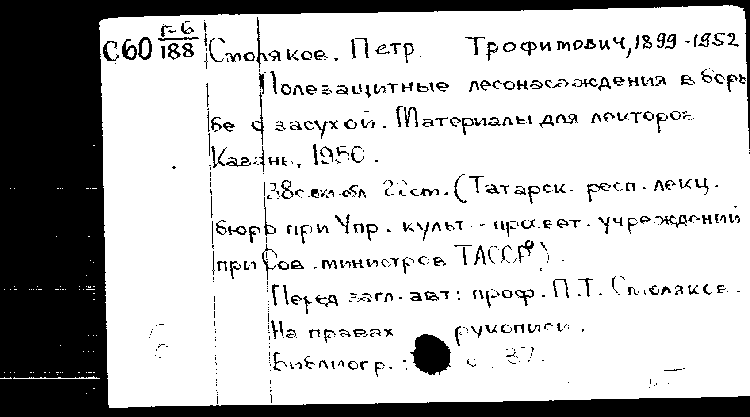 Г-6
С60 188 Смоляков, Петр Трофимович, 1899-1952
Полезащитные лесонасаждения в борь
бе с засухой. Материалы для лекторов
Казань, 1950.
38с.вкл.обл. 22см. (Татарск. респ. лекц.
бюро при Упр. культ.-просвет. учреждений
при Сов. министров ТАССР).
Перед загл. авт: проф. П.Т. Смоляков.
На правах рукописи.
Библиогр.: с. 37.